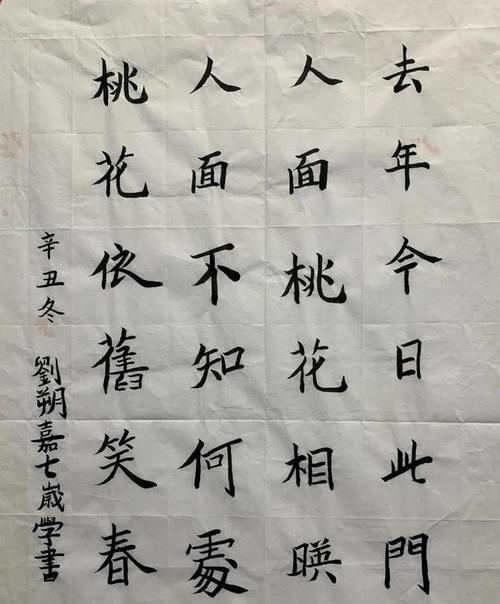 去年今日此門
人面桃花相暎
人面不知何處
桃花依舊笑春
辛丑冬 劉朔嘉七歲學書